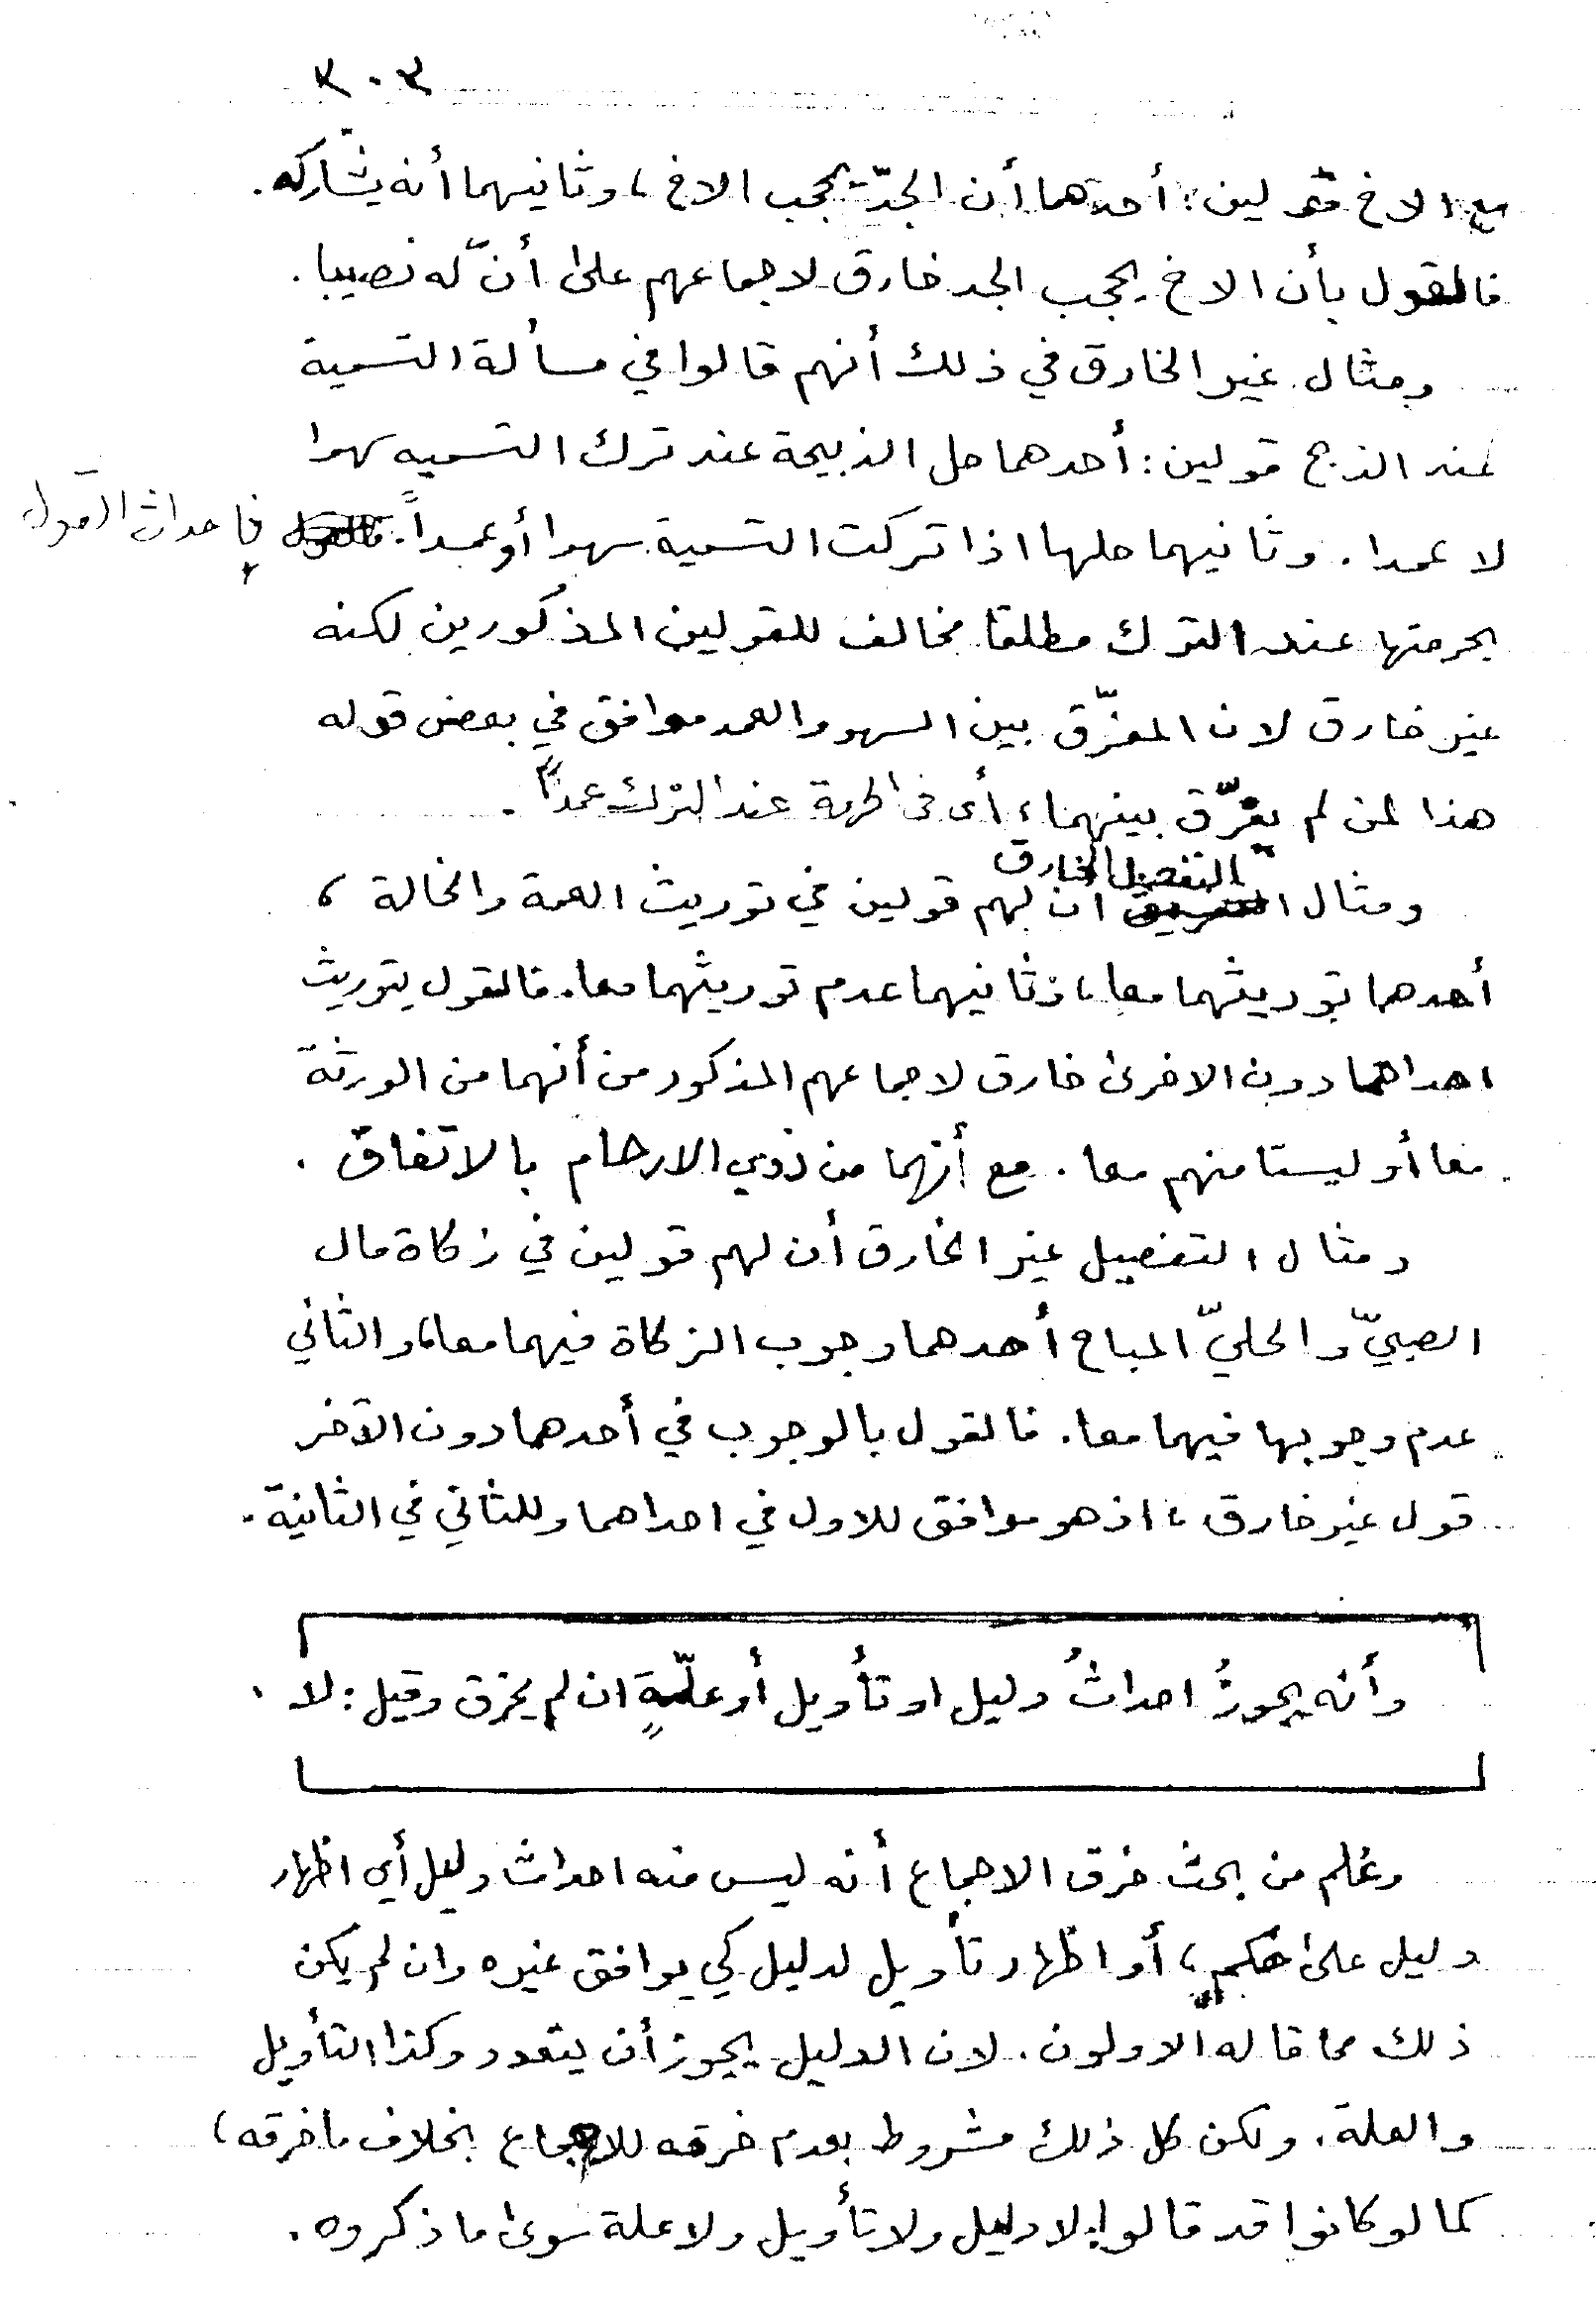 ٣٠٢
مع الاخ قولين: أحدهما أن الجدّ يحجب الاخ، وثانيهما أنه يشاركه.
فالقول بأن الاخ يحجب الجد خارق لاجماعهم على أنّ له نصيبا.
ومثال غير الخارق في ذلك أنهم قالوا في مسألة التسمية
عند الذبح قولين: أحدهما حل الذبيحة عند ترك التسميه سهوا
لا عمدا. وثانيهما حلها اذا تركت التسمية سهوا أو عمداً. فإحداث القول
بحرمتها عند الترك مطلقا مخالف للقولين المذكورين لكنه
غير خارق لان المفرّق بين السهو والعمد موافق في بعض قوله
هذا لمن لم يفرّق بينهما، أى فى الحرمة عند الترك عمداً.
ومثال التفصيل الخارق ان لهم قولين في توريث العمة والخالة،
أحدهما توريثهما معا، وثانيهما عدم توريثهما معا. فالقول بتوريث
احداهما دون الاخرى خارق لاجماعهم المذكور من أنهما من الورثة
معا أو ليستا منهم معا. مع أنهما من ذوي الارحام بالاتفاق.
ومثال التفصيل غير الخارق أن لهم قولين في زكاة مال
الصبيّ والحليّ المباح أحدهما وجوب الزكاة فيهما معا، والثاني
عدم وجوبها فيهما معا. فالقول بالوجوب في أحدهما دون الآخر
قول غير خارق، اذ هو موافق للاول في احداهما وللثاني في الثانية.
وأنه يجوزُ احداثُ دليل او تأويل أو علّةٍ ان لم يخرق وقيل: لا.
وعُلم من بحث خرق الاجماع أنه ليس منه احداث دليل أي اظهار
دليل على حكمٍ، أو اظهار تأويل لدليل كي يوافق غيره وان لم يكن
ذلك مما قاله الاولون. لان الدليل يجوز أن يتعدد وكذا التأويل
والعلة. ولكن كل ذلك مشروط بعدم خرقه للاجماع بخلاف ما خرقه،
كما لو كانوا قد قالوا: لا دليل ولا تأويل ولا علة سوى ما ذكروه.